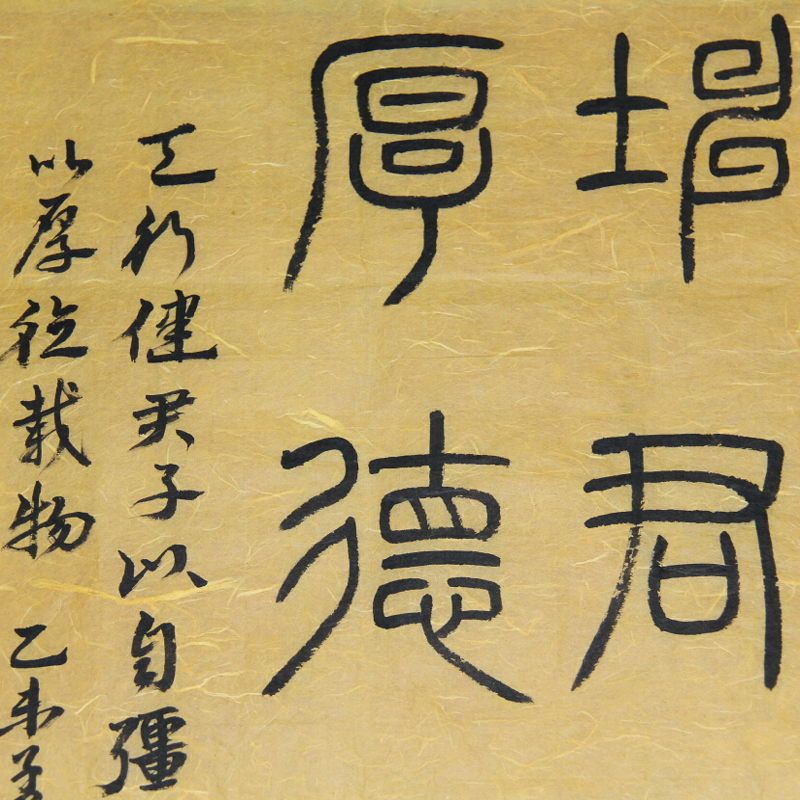 坤君
厚德
天行健君子以自彊
以厚德載物 乙未